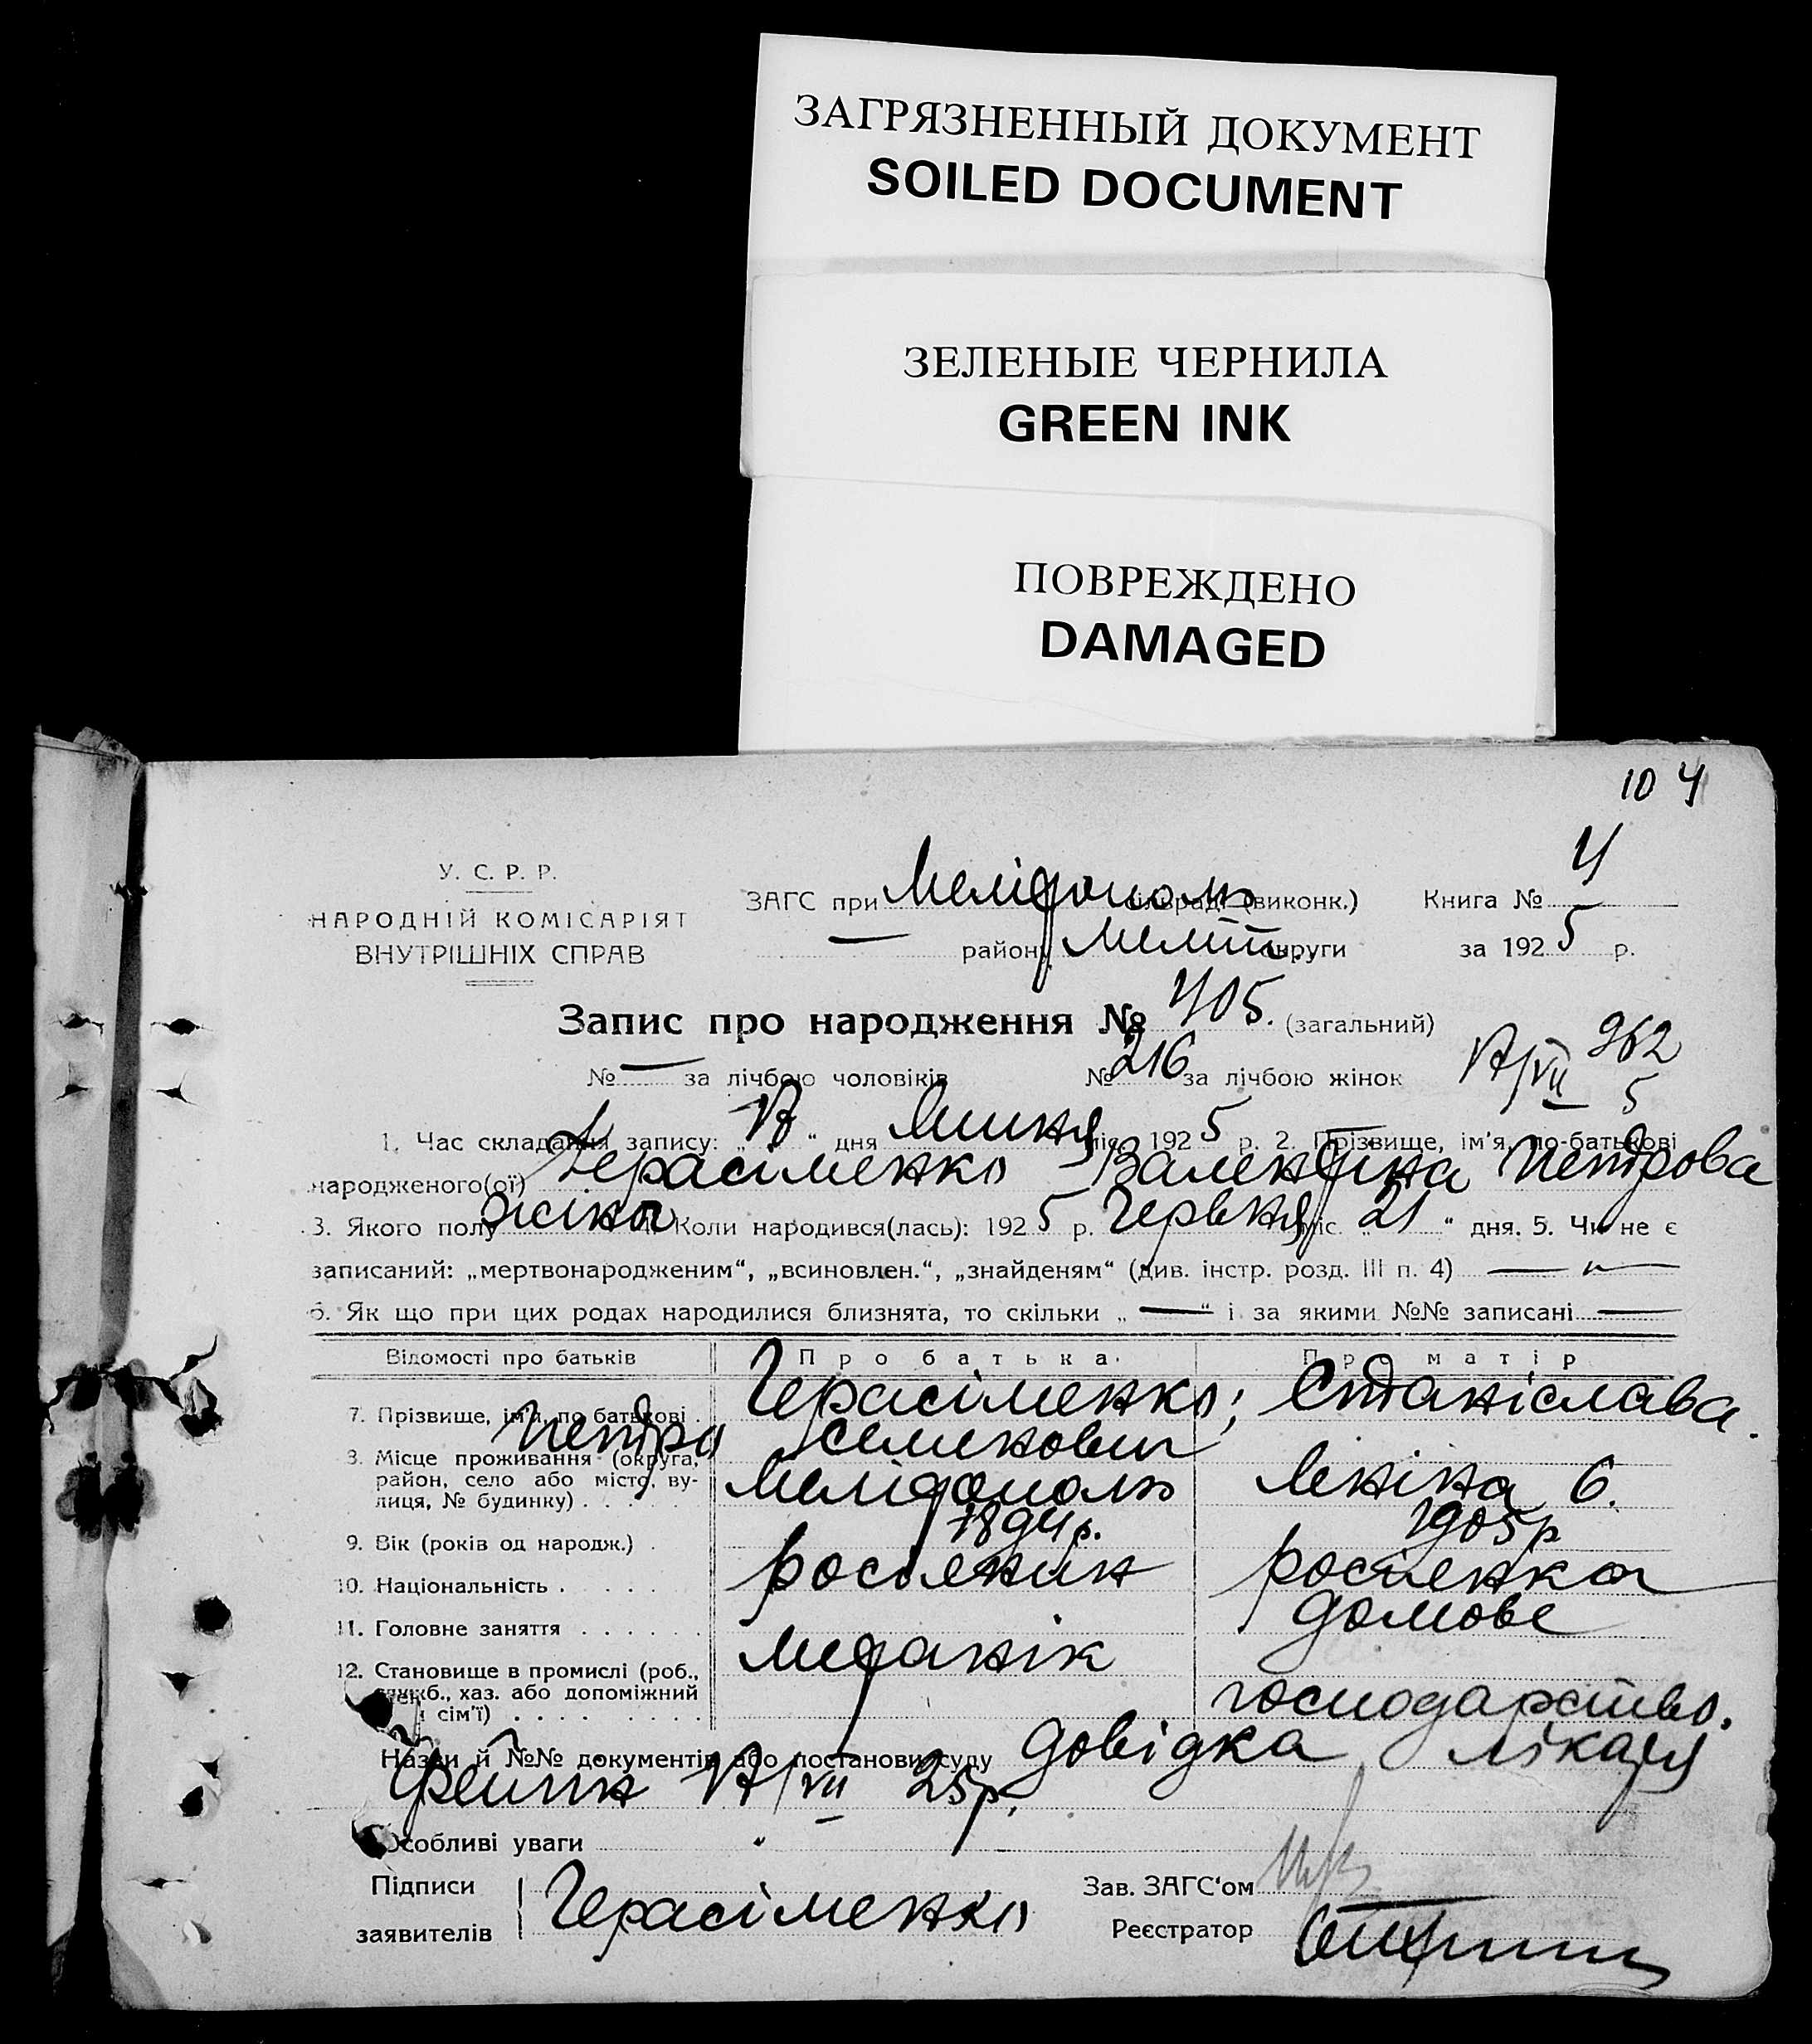 ЗАГРЯЗНЕННЫЙ ДОКУМЕНТ
SOILED DOCUMENT
ЗЕЛЕНЫЕ ЧЕРНИЛА
GREEN INK
ПОВРЕЖДЕНО
DAMAGED
104
У. С. Р. Р.
НАРОДНІЙ КОМІСАРІЯТ
ВНУТРІШНІХ СПРАВ
ЗАГС при Мелітополь сільраді (виконк.) Книга № 4
— району Меліт. округи за 1925 р.
Запис про народження № 405. (загальний)
№ — за лічбою чоловіків № 216 за лічбою жінок
962
5
1. Час складання запису: „ “ дня Липня міс. 1925 р. 2. Прізвище, ім'я, по-батькові
народженого(ої) Герасіменко Валентина Петрова
3. Якого полу жіноч. 4. Коли народився(лась): 1925 р. Червня міс. „21“ дня. 5. Чи не є
записаний: „мертвонародженим“, „всиновлен.“, „знайденям“ (див. інстр. розд. III п. 4) — „ —
6. Як що при цих родах народилися близнята, то скільки „—“ і за якими №№ записані —
Відомості про батьків Про батька. Про матір
7. Прізвище, ім'я, по батькові . Герасіменко; Станіслава.
Петро Семенович
8. Місце проживання (округа, район, село або місто, вулиця, № будинку) . . . . . Мелітополь Леніна 6.
9. Вік (років од народж.) . 1894 р. 1905 р
10. Національність . . . . . росіянин росіянка
11. Головне заняття . . . . . . механік домове
12. Становище в промислі (роб., службб., хаз. або допоміжний член сім'ї) . . . . . . . . господарство.
Назви й №№ документів або постанови суду довідка лікаря
25р.
Особливі уваги
Підписи
заявителів Герасіменко
Зав. ЗАГС‘ом
Реєстратор